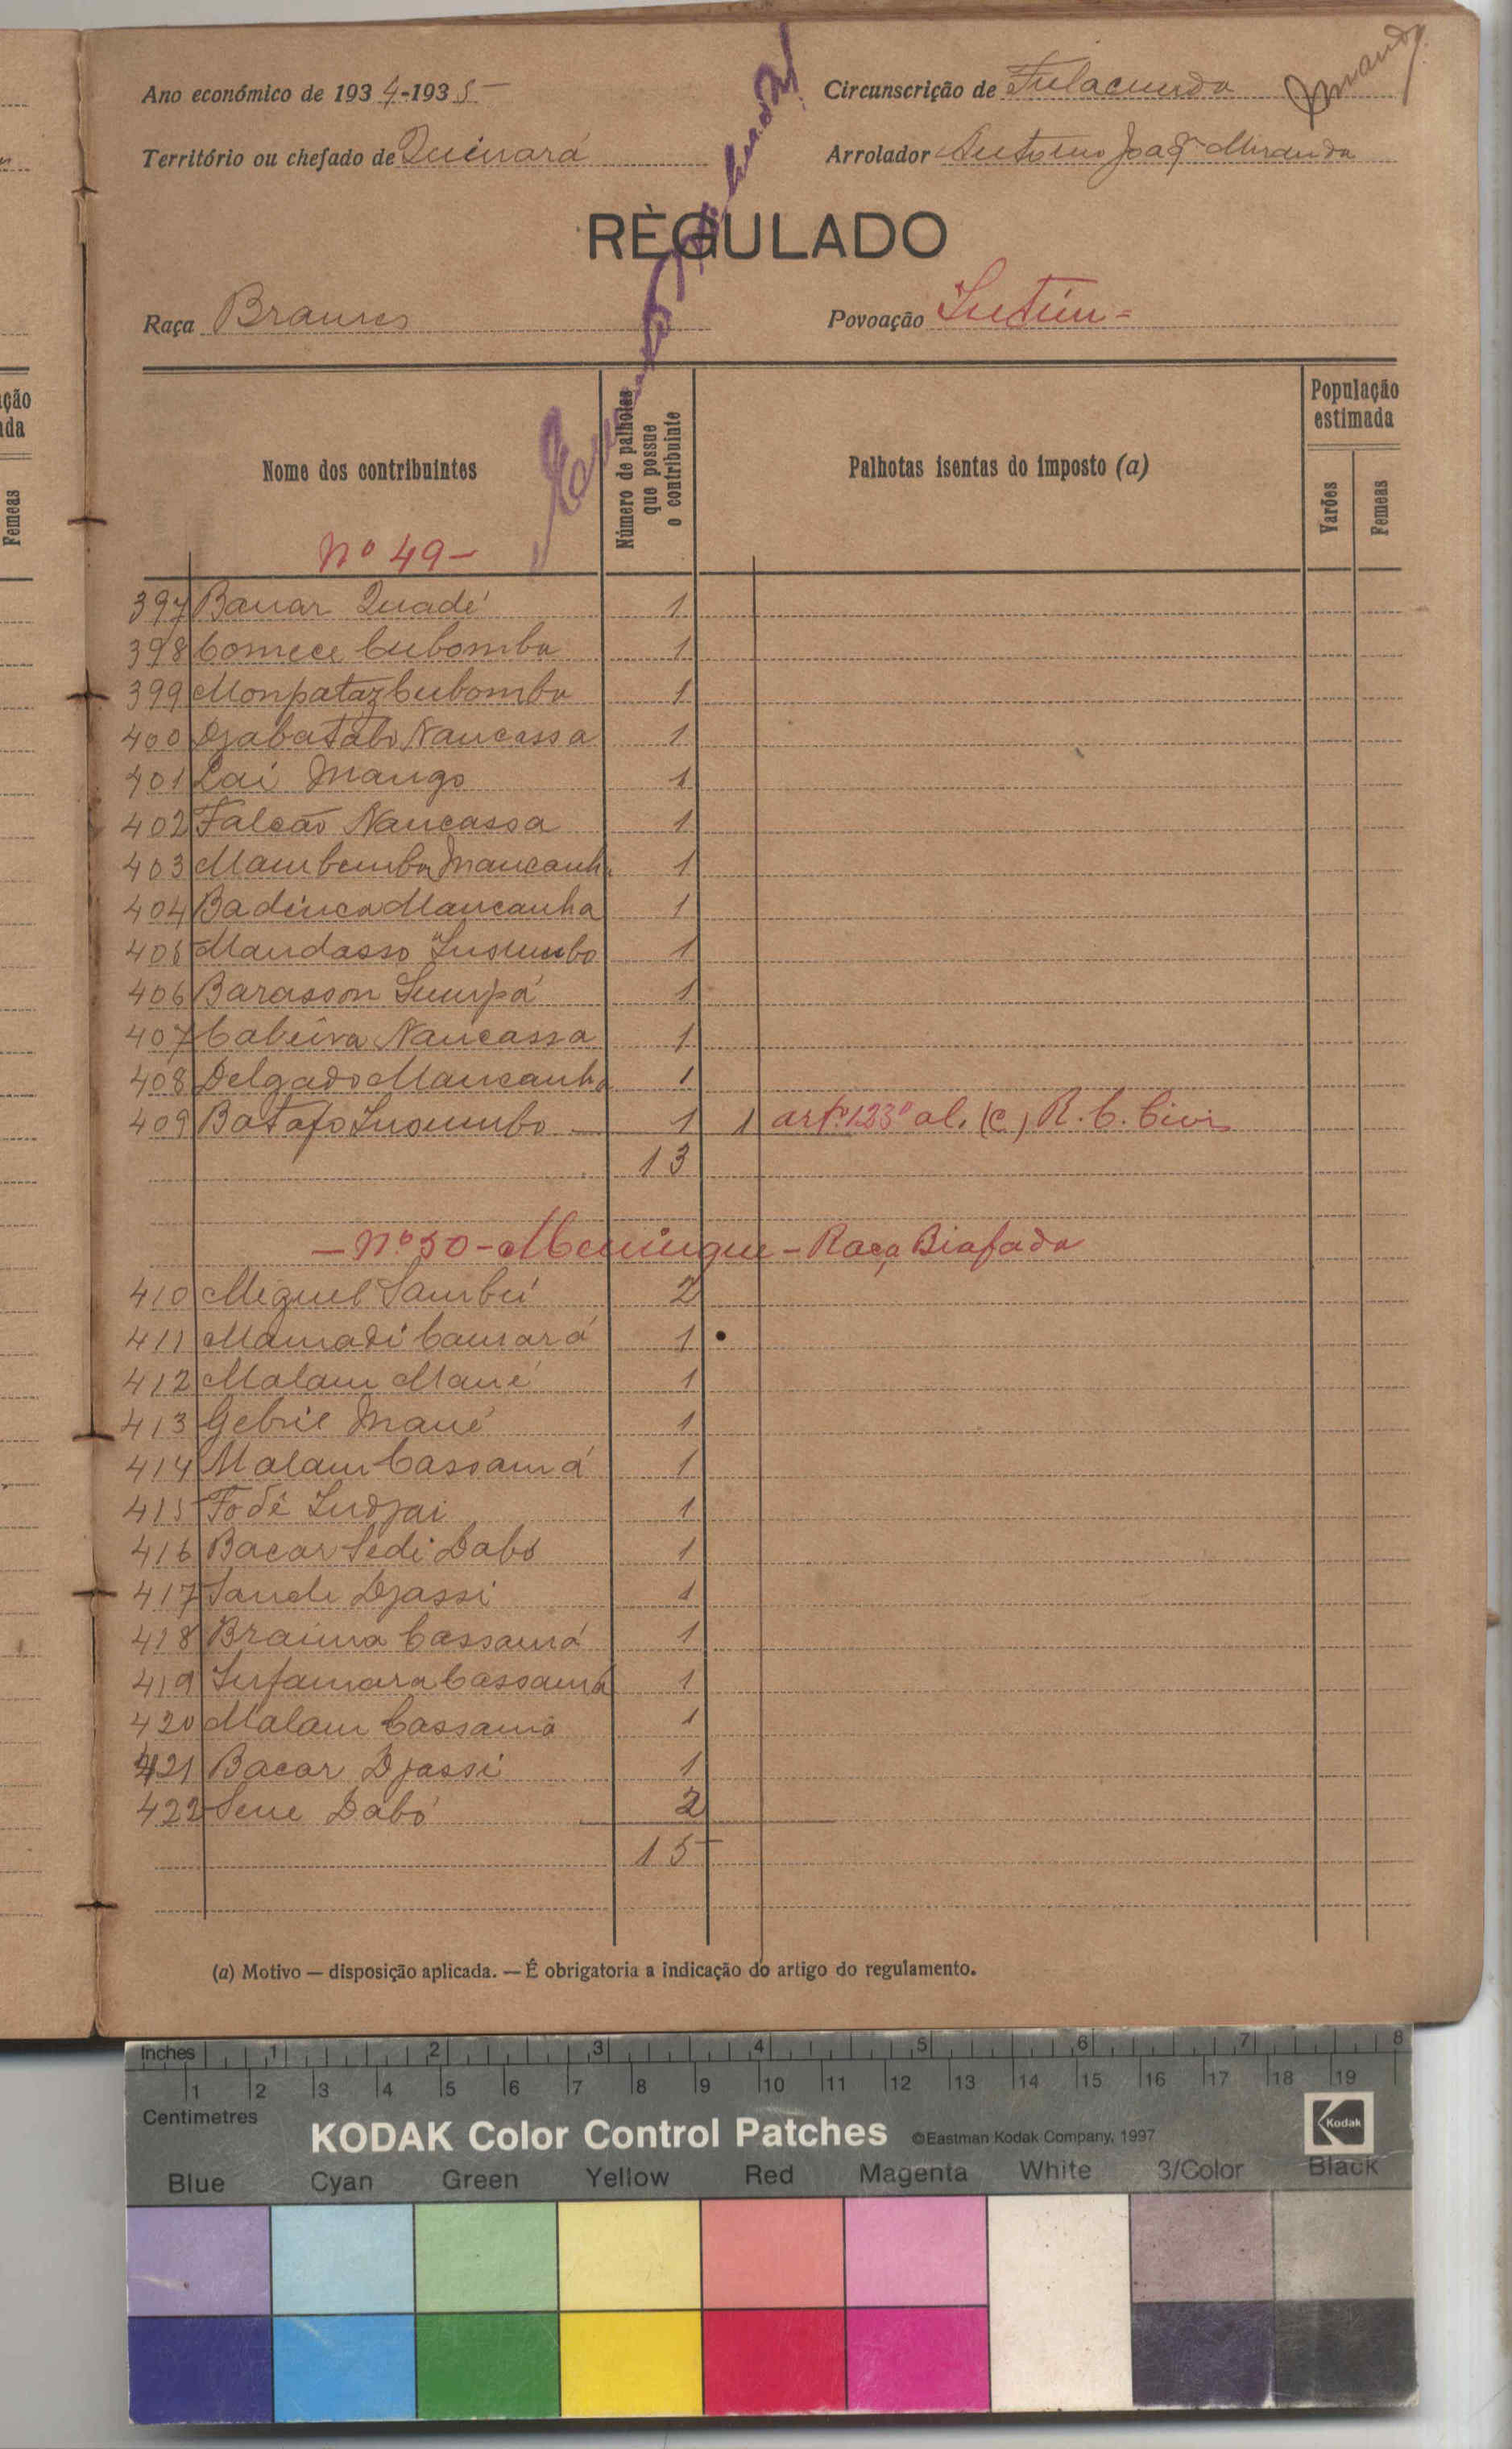 Ano económico de 1934-1935
Circunscrição de Fulacunda
Território ou chefado de Quinará
Arrolador Antonio Joaq Miranda
RÈGULADO
Raça Brames
Povoação
Nome dos contribuintes
Nº 49-
Número de palhotas que possue o contribuinte
Palhotas isentas do imposto (a)
População estimada
Varões
Femeas
ção
da
Femeas
397 Banar Quadé 1
398 Comece Cubomba 1
399 Monpataz Cubomba 1
400 Djabatabo Nancassa 1
401 Lai Mango 1
402 Falcão Nancassa 1
403 Mancanha 1
404 Badinca Mancanha 1
405 Mandasso 1
406 Barasson 1
407 Nancassa 1
408 Delgado Mancanha 1
409 1 1 artº 123º al. (c) R. C. Civis
13
- Nº 50 - - Raça Biafada
410 Miguel Sambú 2
411 Mamadi Camará 1
412 Malam Mané 1
413 Gebril Mané 1
414 Malam Cassamá 1
415 Fodé Indjai 1
416 Bacar Sedi Dabó 1
417 Djassi 1
418 Braima Cassamá 1
419 Infamara Cassamá 1
420 Malam Cassamá 1
421 Bacar Djassi 1
422 Sene Dabó 2
15
(a) Motivo — disposição aplicada. — É obrigatoria a indicação do artigo do regulamento.
Inches 1 2 3 4 5 6 7 8
1 2 3 4 5 6 7 8 9 10 11 12 13 14 15 16 17 18 19
Centimetres
KODAK Color Control Patches ©Eastman Kodak Company, 1997
Kodak
Blue Cyan Green Yellow Red Magenta White 3/Color Black